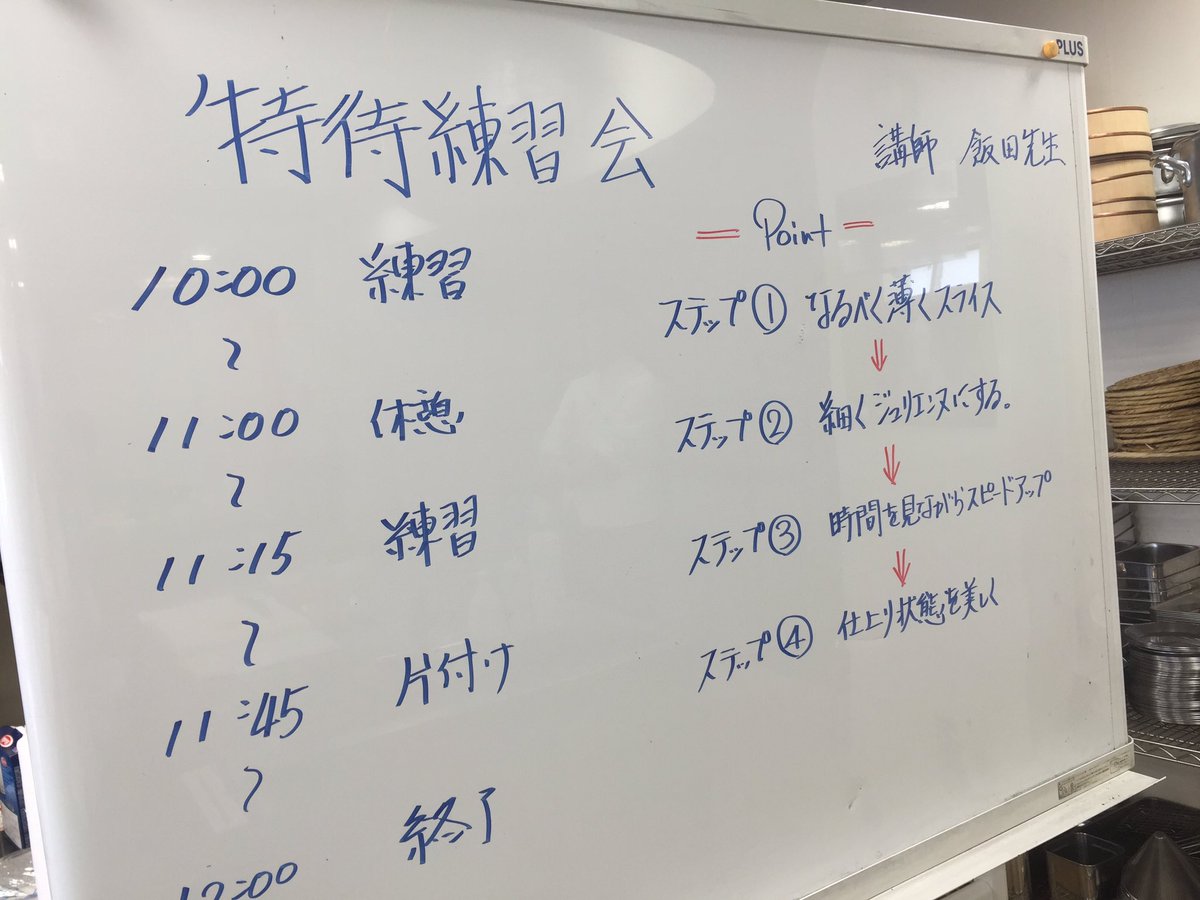 PLUS
特待練習会
講師 飯田先生
10:00 練習
〜
11:00 休憩
〜
11:15 練習
〜
11:45 片付け
〜
12:00 終了
= Point =
ステップ① なるべく薄くスライス
↓
ステップ② 細くジュリエンヌにする。
↓
ステップ③ 時間を見ながらスピードアップ
↓
ステップ④ 仕上り状態を美しく